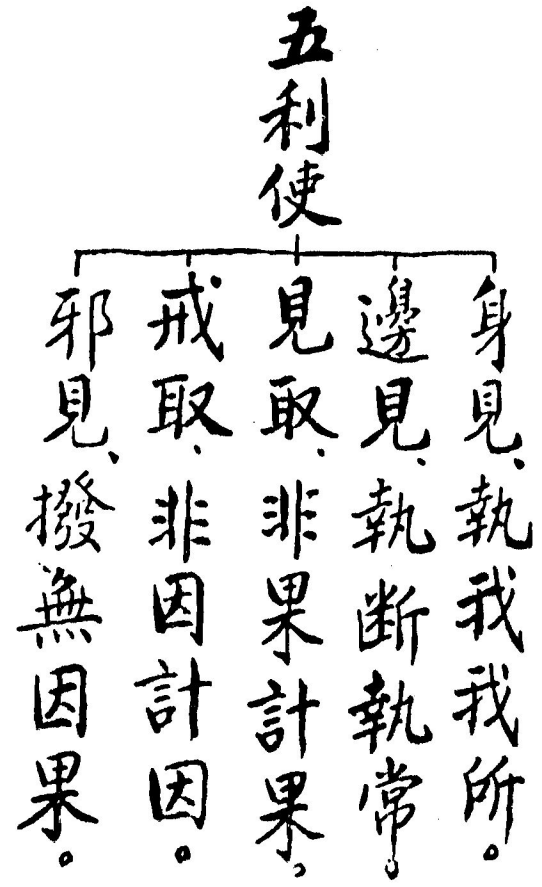 五利使
身見、執我我所。
邊見、執断執常。
見取、非果計果。
戒取、非因計因。
邪見、撥無因果。